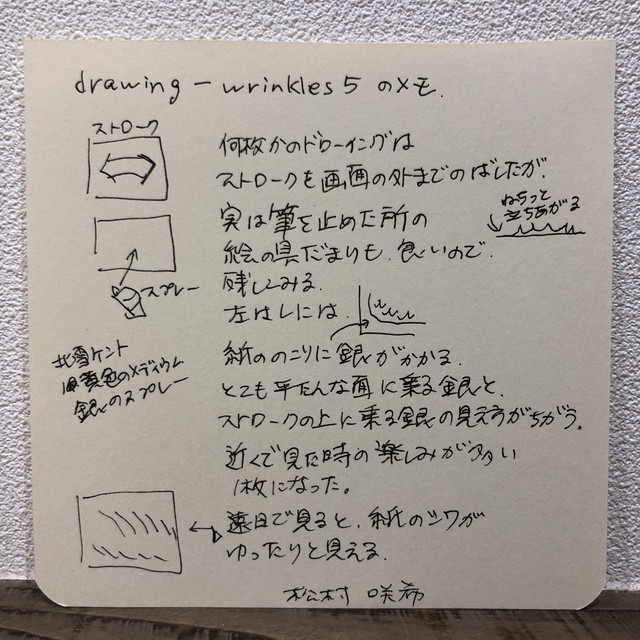 drawing – wrinkles 5 のメモ.
ストローク
何枚かのドローイングは
ストロークを画面の外までのばしたが.
実は筆を止めた所の
絵の具だまりも.良いので.
残してみる.
ねちっと
立ちあがる
スプレー
左はしには.
紙ののこりに銀がかかる.
北雪ケント
黄色のメディウム
銀のスプレー
とても平たんな面に乗る銀と.
ストロークの上に乗る銀の見え方がちがう.
近くで見た時の楽しみが多い
1枚になった。
遠目で見ると.紙のシワが
ゆったりと見える.
松村 咲希